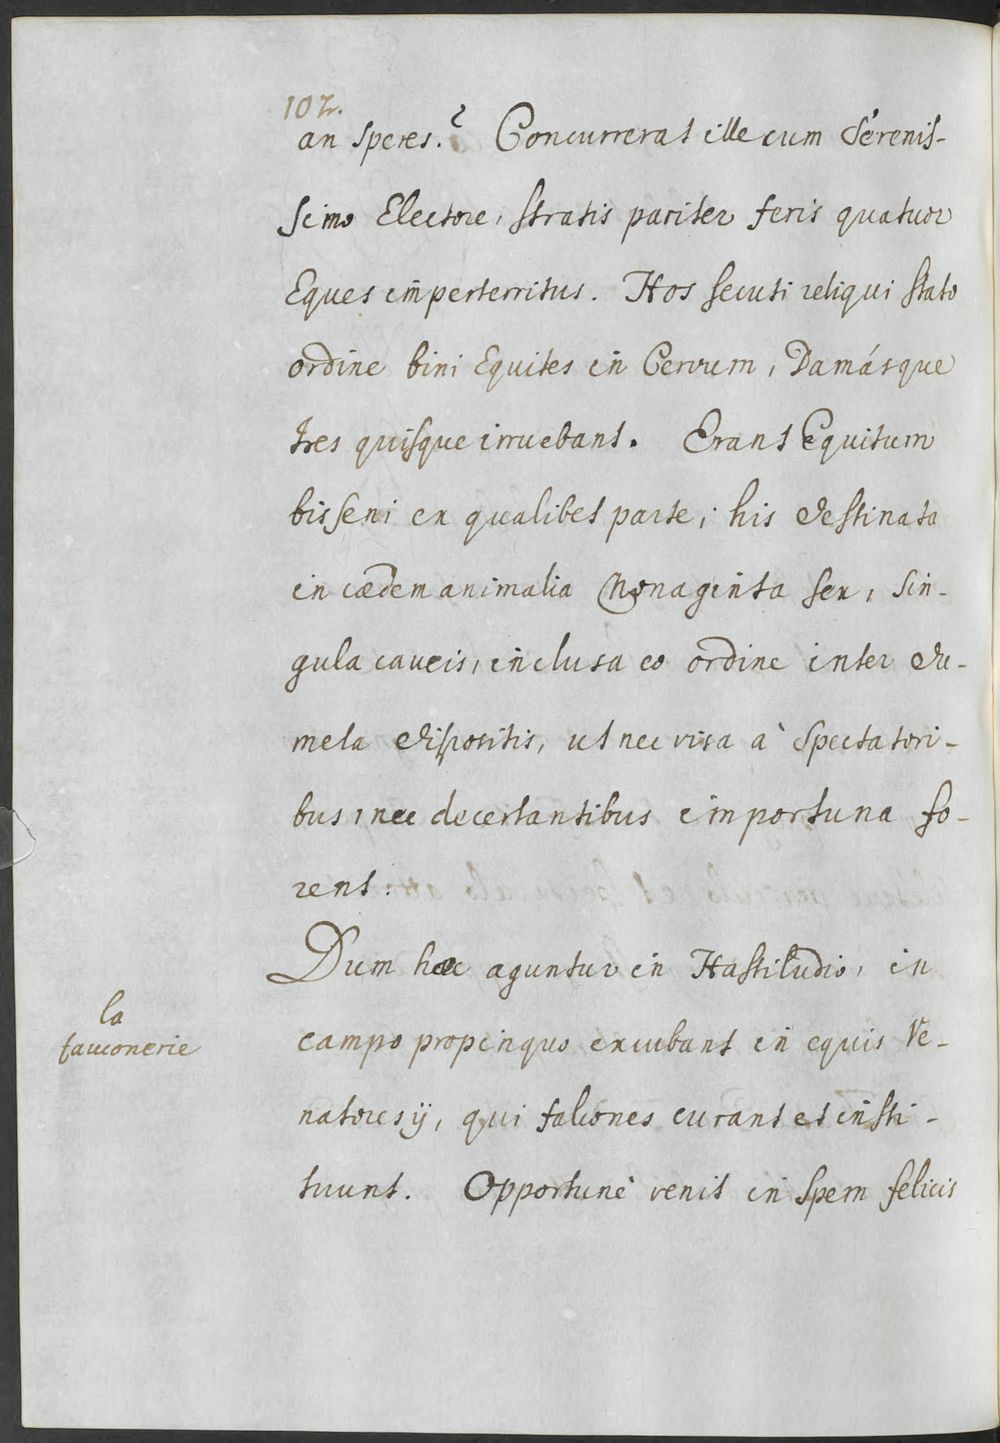 102.
an speres.? Concurrerat ille cum Serenis-
simo Electore, stratis pariter feris quatuor
Eques imperterritus. Hos secuti reliqui stato
ordine bini Equites in Cervum, Damásque
tres quisque irruebant. Erant Equitum
bisseni ex qualibet parte; his destinata
in cædem animalia Nonaginta sex, sin-
gula caveis, inclusa eo ordine inter du-
meta dispositis, ut nec visa à Spectatori-
bus, nec decertantibus importuna fo-
rent.
Dum hæc aguntur in Hastiludio, in
la
fauconerie
campo propinquo excubant in equis Ve-
natores ij, qui falcones curant et insti-
tuunt. Opportunè venit in spem felicis